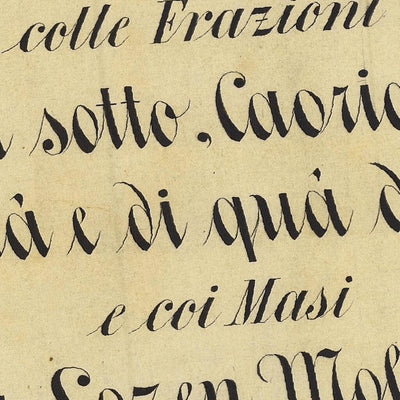 colle Frazioni
sotto, Caorio
e di quá
e coi Masi
Lozen, Mol